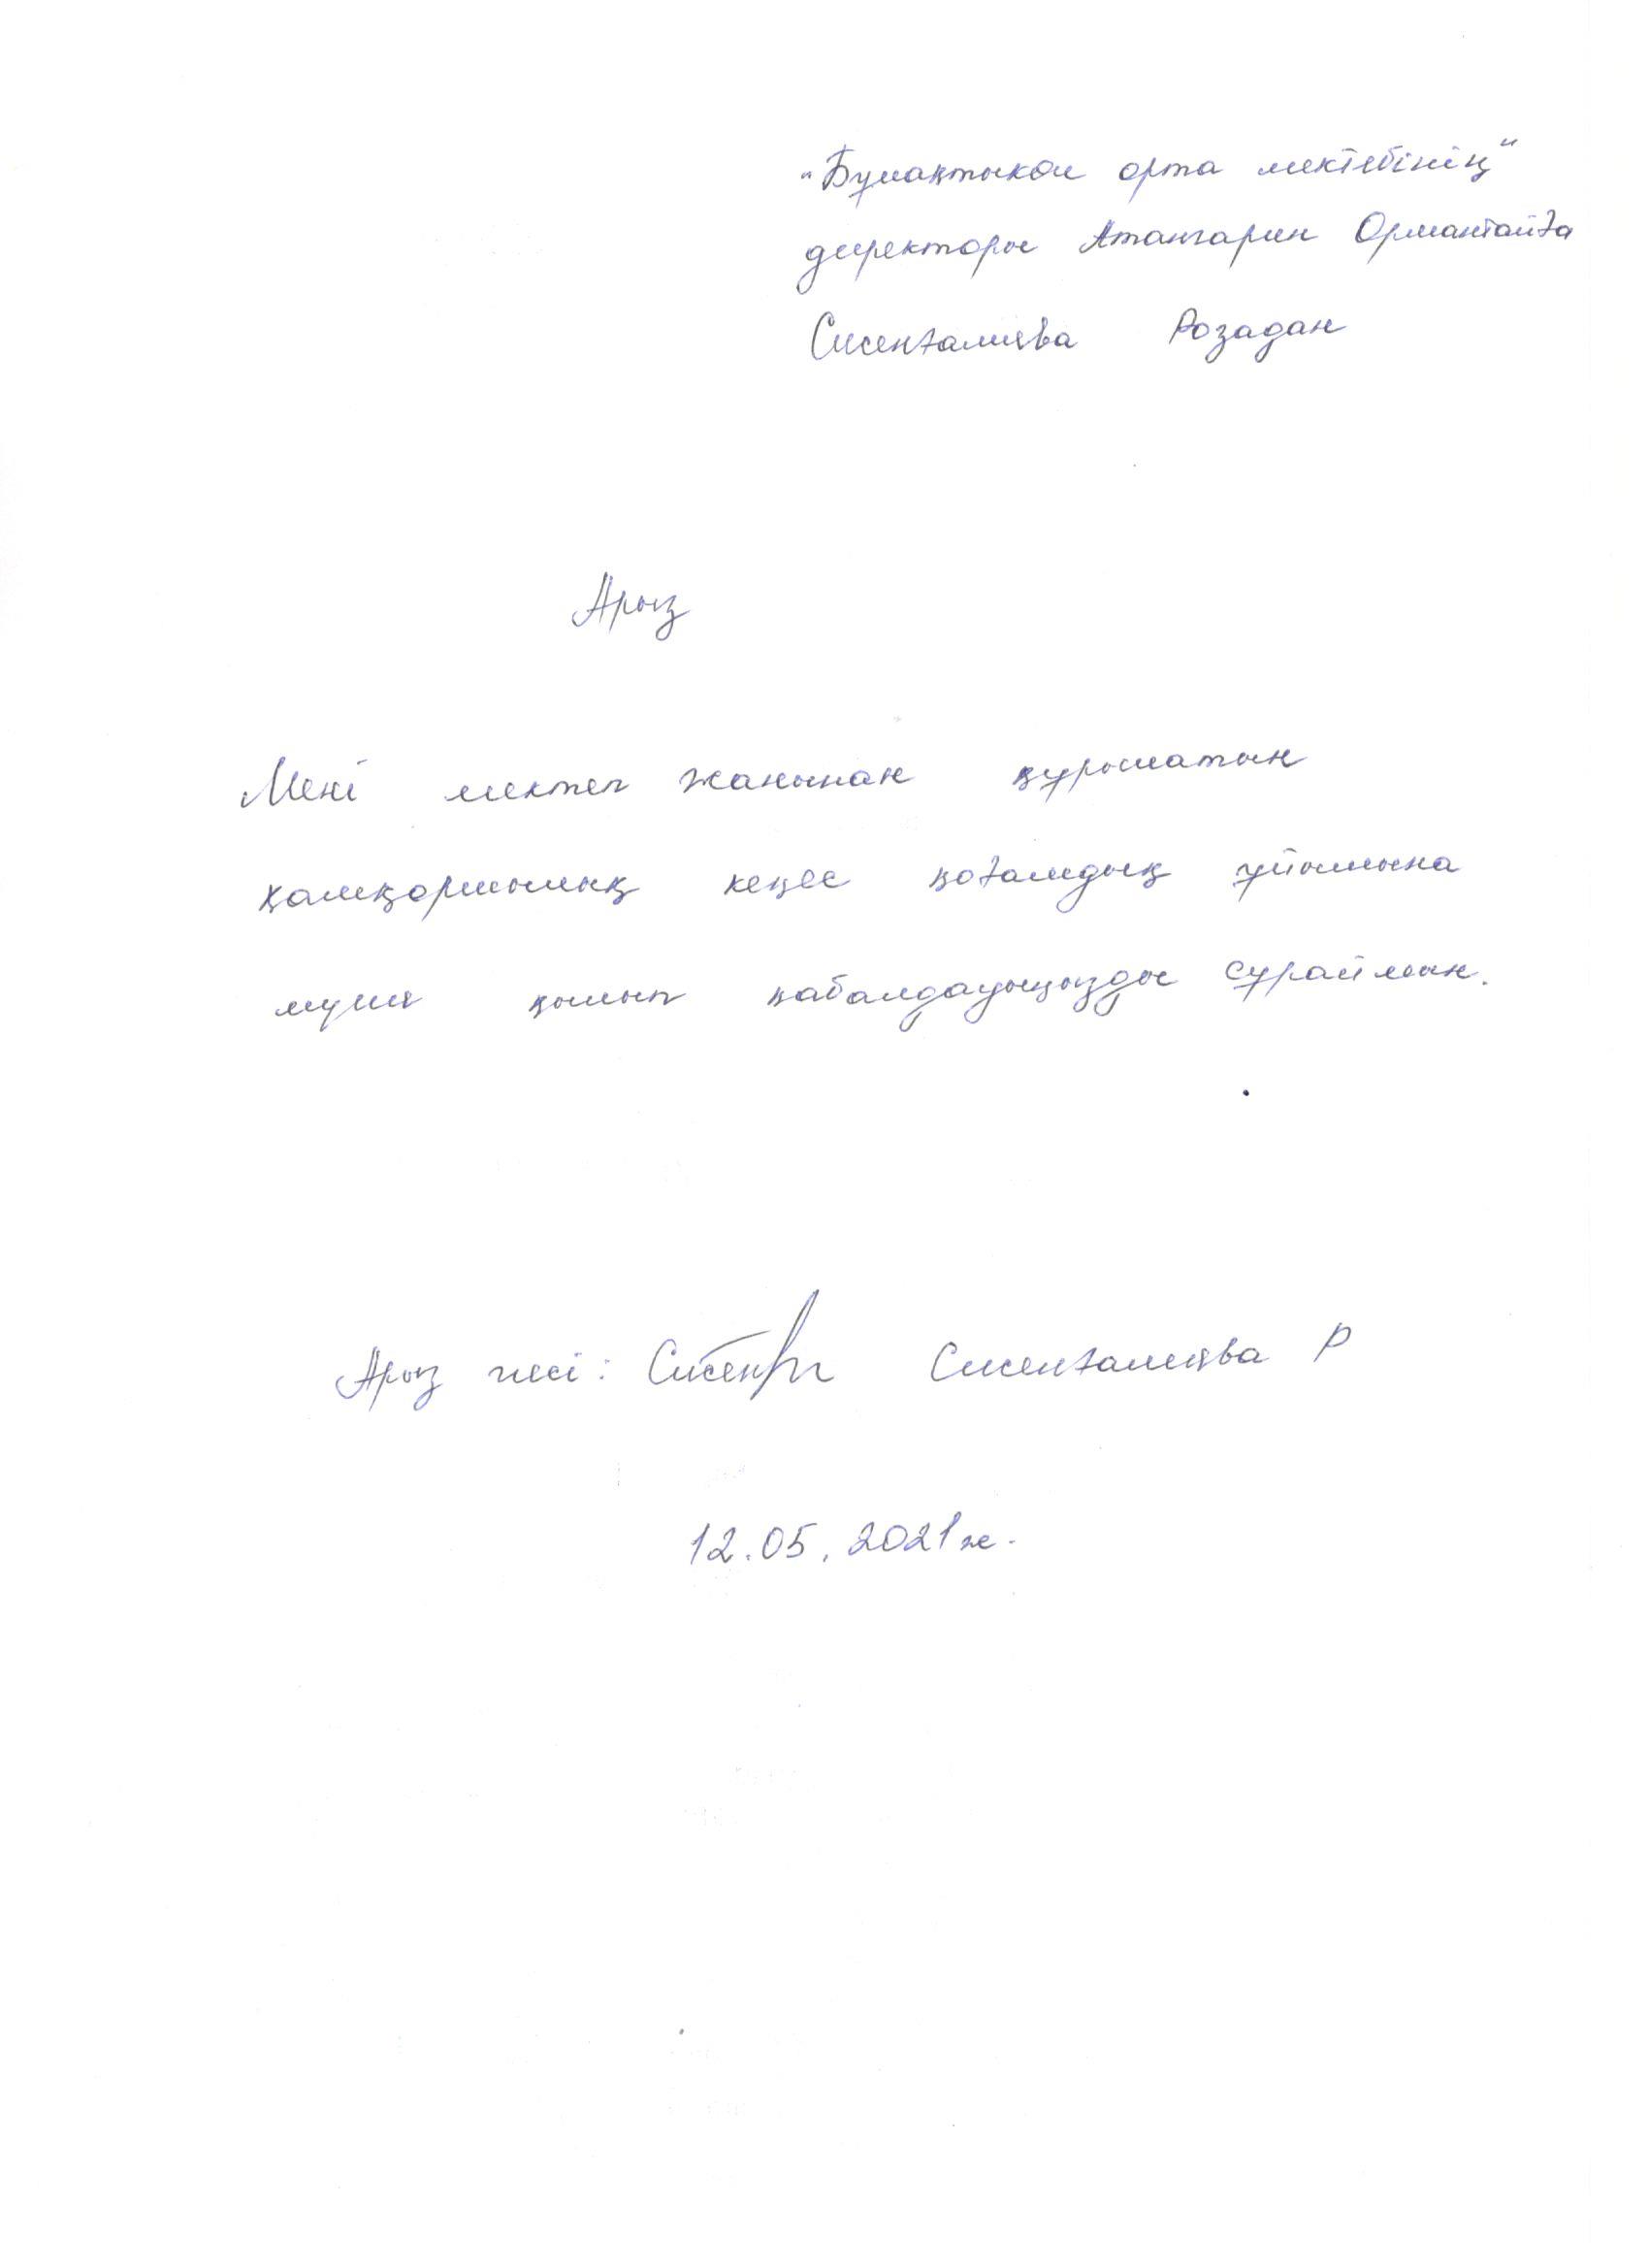 "Бұлақтыкөл орта мектебінің"
директоры Атангарин Ормантайға
Сисенғалиева Розадан
Арыз
Мені мектеп жанынан құрылатын
қамқоршылық кеңес қоғамдық ұйымына
мүше қылып қабалдауыңызды сұраймын.
Арыз иесі: Сисенғалиева Р
12.05.2021ж.